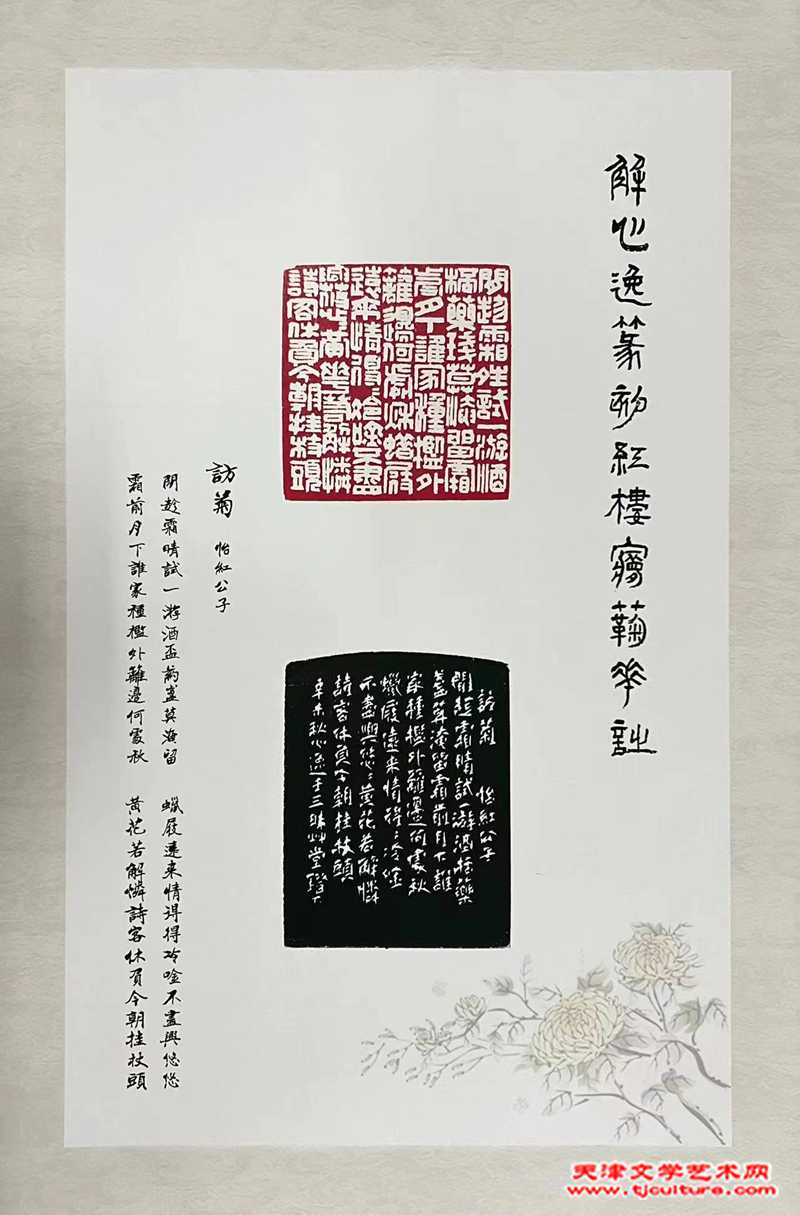 解心逸篆刻紅樓夢蘜花詩
閑趁霜晴試一游酒
桮藥琖莫淹留霜
前月下誰家種檻外
籬邊何處秋蠟屐
遠來情得〻冷唫不盡
興悠〻黃花若解憐
詩客休負今朝挂杖頭
訪菊 怡紅公子
閑趁霜晴試一游酒盃葯盞莫淹留 蠟屐遠來情得得冷唫不盡興悠悠
霜前月下誰家種檻外籬邊何處秋 黃花若解憐詩客休負今朝挂杖頭
訪菊 怡紅公子
閒趁霜晴試一游酒桮藥
盞莫淹留霜前月下誰
家種檻外籬邊何處秋
蠟屐遠來情得〻冷唫
不盡興悠〻黃花若解憐
詩客休負今朝挂杖頭
辛未秋心逸于三昧艸堂鐙下
天津文学艺术网
www.tjculture.com